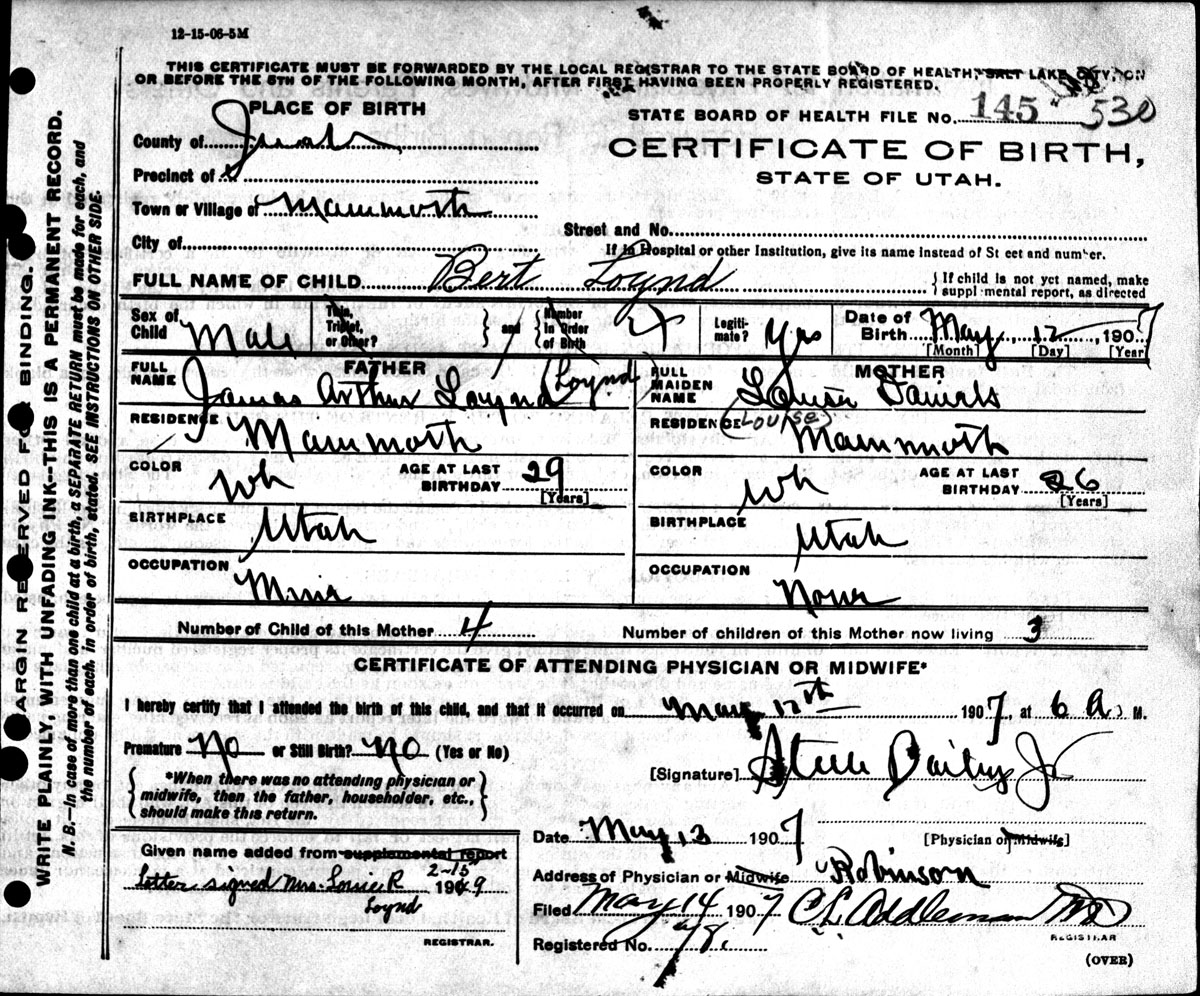 12-15-06-5M
THIS CERTIFICATE MUST BE FORWARDED BY THE LOCAL REGISTRAR TO THE STATE BOARD OF HEALTH, SALT LAKE CITY, ON
OR BEFORE THE 5TH OF THE FOLLOWING MONTH, AFTER FIRST HAVING BEEN PROPERLY REGISTERED.
PLACE OF BIRTH
STATE BOARD OF HEALTH FILE No. 145 530
County of Juab
CERTIFICATE OF BIRTH,
STATE OF UTAH.
Precinct of
Town or Village of Mammoth
Street and No.
City of
If in Hospital or other Institution, give its name instead of St eet and number.
FULL NAME OF CHILD Bert Loynd
If child is not yet named, make
suppl mental report, as directed
Sex of Child Male
Twin, Triplet, or Other? and Number in Order of Birth
Legitimate? Yes
Date of Birth May 12, 1907
[Month] [Day] [Year]
FATHER
FULL NAME James Arthur Loynd (Loynd)
MOTHER
FULL MAIDEN NAME Louise Daniels
(LOUISE)
RESIDENCE Mammoth
RESIDENCE Mammoth
COLOR Wh AGE AT LAST BIRTHDAY 29 [Years]
COLOR Wh AGE AT LAST BIRTHDAY 26 [Years]
BIRTHPLACE Utah
BIRTHPLACE Utah
OCCUPATION Miner
OCCUPATION None
Number of Child of this Mother 4
Number of children of this Mother now living 3
CERTIFICATE OF ATTENDING PHYSICIAN OR MIDWIFE*
I hereby certify that I attended the birth of this child, and that it occurred on May 12th 1907, at 6 A. M.
Premature No or Still Birth? NO (Yes or No)
[Signature] Steele Bailey Jr
*When there was no attending physician or
midwife, then the father, householder, etc.,
should make this return.
Date May 13 1907
[Physician or Midwife]
Given name added from supplemental report
Letter signed Mrs. R 2-15 1949
Loynd
REGISTRAR.
Address of Physician or Midwife Robinson
Filed May 14 1907 C L Addleman MD
REGISTRAR
Registered No.
(OVER)
MARGIN RESERVED FOR BINDING.
WRITE PLAINLY, WITH UNFADING INK--THIS IS A PERMANENT RECORD.
N. B.--In case of more than one child at a birth, a SEPARATE RETURN must be made for each, and
the number of each, in order of birth, stated. SEE INSTRUCTIONS ON OTHER SIDE.